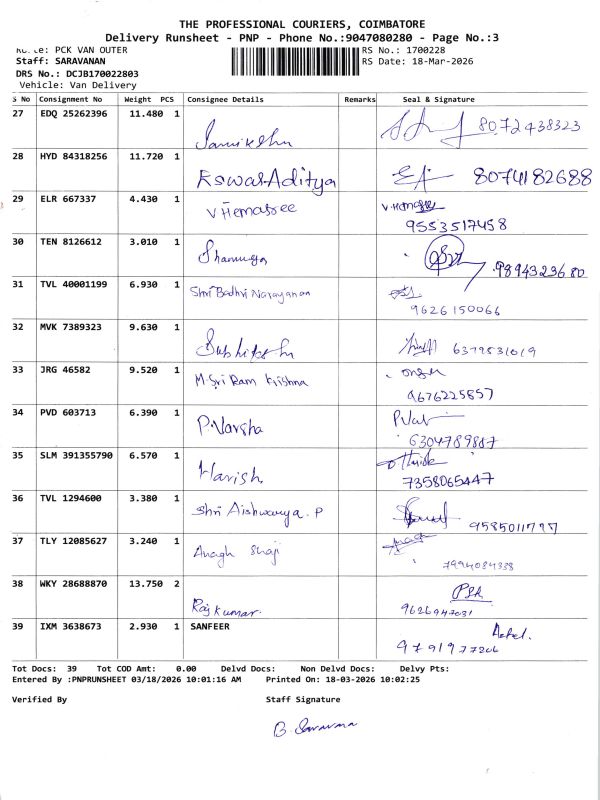 THE PROFESSIONAL COURIERS, COIMBATORE
Delivery Runsheet - PNP - Phone No.:9047080280 - Page No.:3
PCK VAN OUTER RS No.: 1700228
Staff: SARAVANAN RS Date: 18-Mar-2026
DRS No.: DCJB170022803
Vehicle: Van Delivery
S No Consignment No Weight PCS Consignee Details Remarks Seal & Signature
27 EDQ 25262396 11.480 1 8072438323
28 HYD 84318256 11.720 1 EswarAditya 8074182688
29 ELR 667337 4.430 1 V Hemasree V.Hemasree
9553517458
30 TEN 8126612 3.010 1 9894323680
31 TVL 40001199 6.930 1 Shri Badhri Narayanan
9626150066
32 MVK 7389323 9.630 1 6379531019
33 JRG 46582 9.520 1 M.Sri Ram Krishna
9676225857
34 PVD 603713 6.390 1 P.Varsha
6304789887
35 SLM 391355790 6.570 1 Harish.
7358065447
36 TVL 1294600 3.380 1 Shri Aishwarya. P
37 TLY 12085627 3.240 1 Anagh Shaji
7994084338
38 WKY 28688870 13.750 2 Rajkumar.
9626947031
39 IXM 3638673 2.930 1 SANFEER
Tot Docs: 39 Tot COD Amt: 0.00 Delvd Docs: Non Delvd Docs: Delvy Pts:
Entered By :PNPRUNSHEET 03/18/2026 10:01:16 AM Printed On: 18-03-2026 10:02:25
Verified By Staff Signature